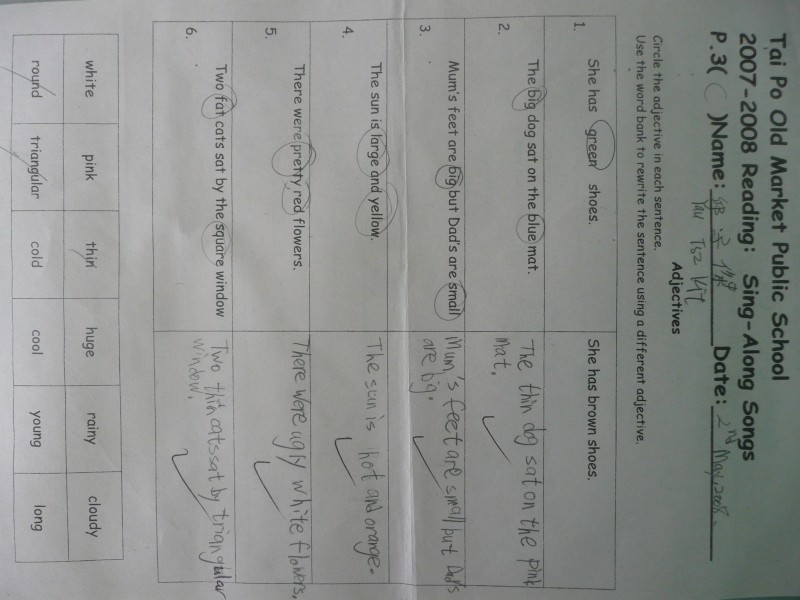 Tai Po Old Market Public School
2007-2008 Reading: Sing-Along Songs
P.3( C )Name: Yau Tsz Kit Date: 2nd May, 2008.
Adjectives
Circle the adjective in each sentence.
Use the word bank to rewrite the sentence using a different adjective.
1. She has green shoes. She has brown shoes.
2. The big dog sat on the blue mat. The thin dog sat on the pink
mat.
3. Mum's feet are big but Dad's are small Mum's feet are small but Dad's
are big.
4. The sun is large and yellow. The sun is hot and orange.
5. There were pretty red flowers. There were ugly white flowers,
6. Two fat cats sat by the square window Two thin cats sat by triangular
window.
white pink thin huge rainy cloudy
round triangular cold cool young long